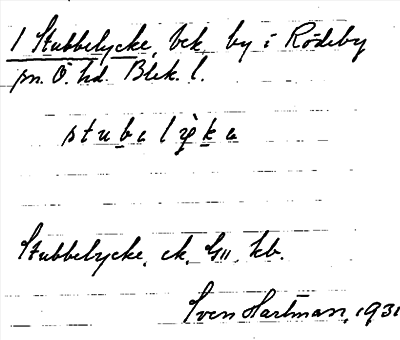 1 Stubbelycke, bek. by i Rödeby
sn. Ö. hd. Blek. l.
stubalyka
Stubbelycke, ek. G11, kb.
Sven Hartman, 1931